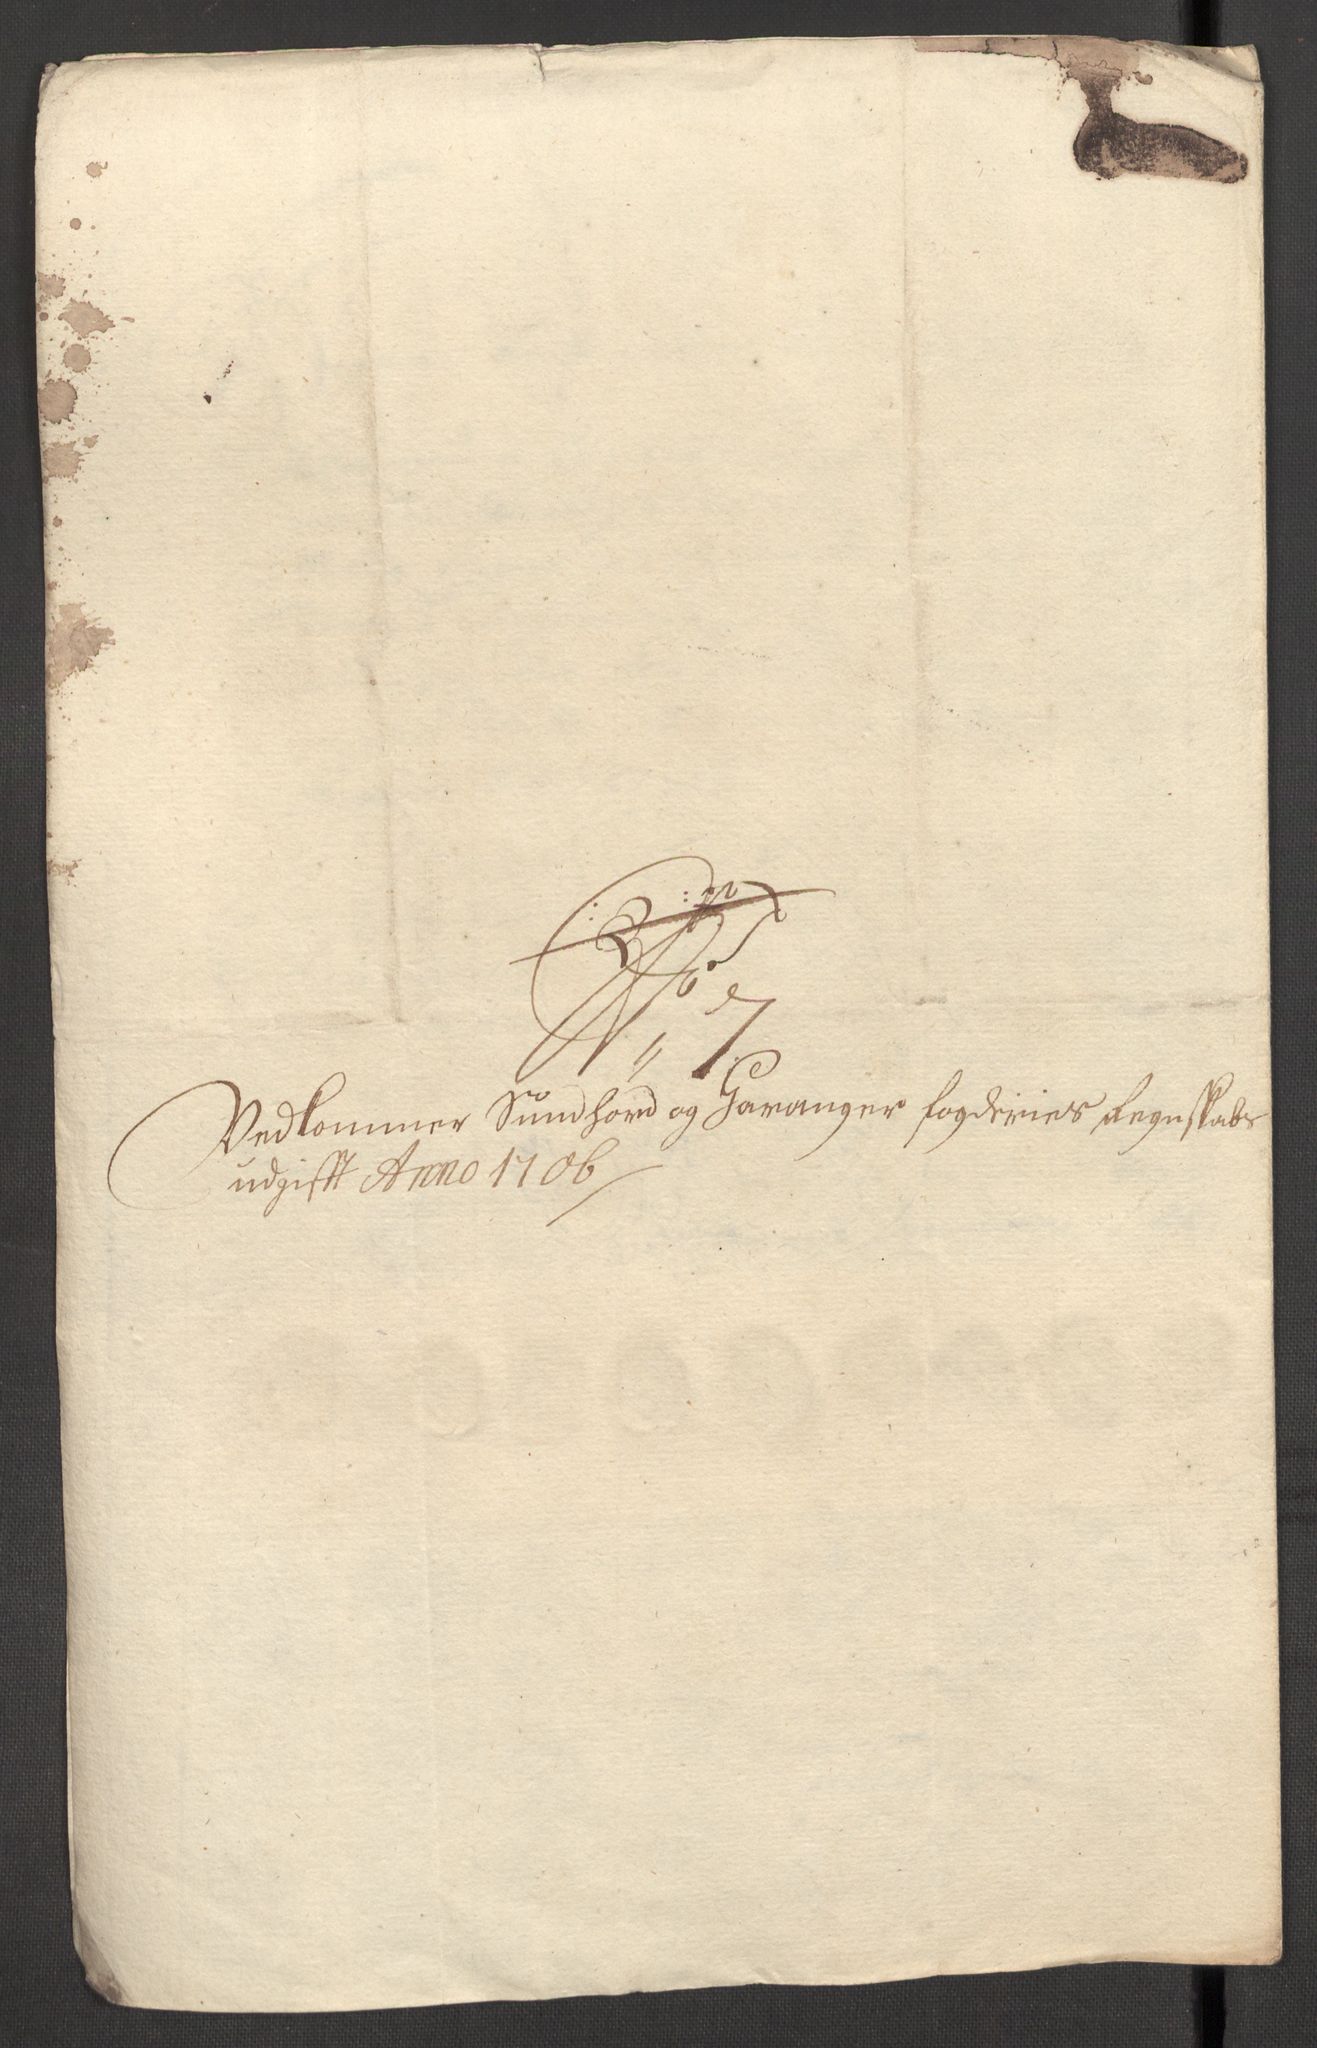 No 7
Vedkommer Sundhord og Haranger fogderies Regnskabs
udgifft Anno 1706